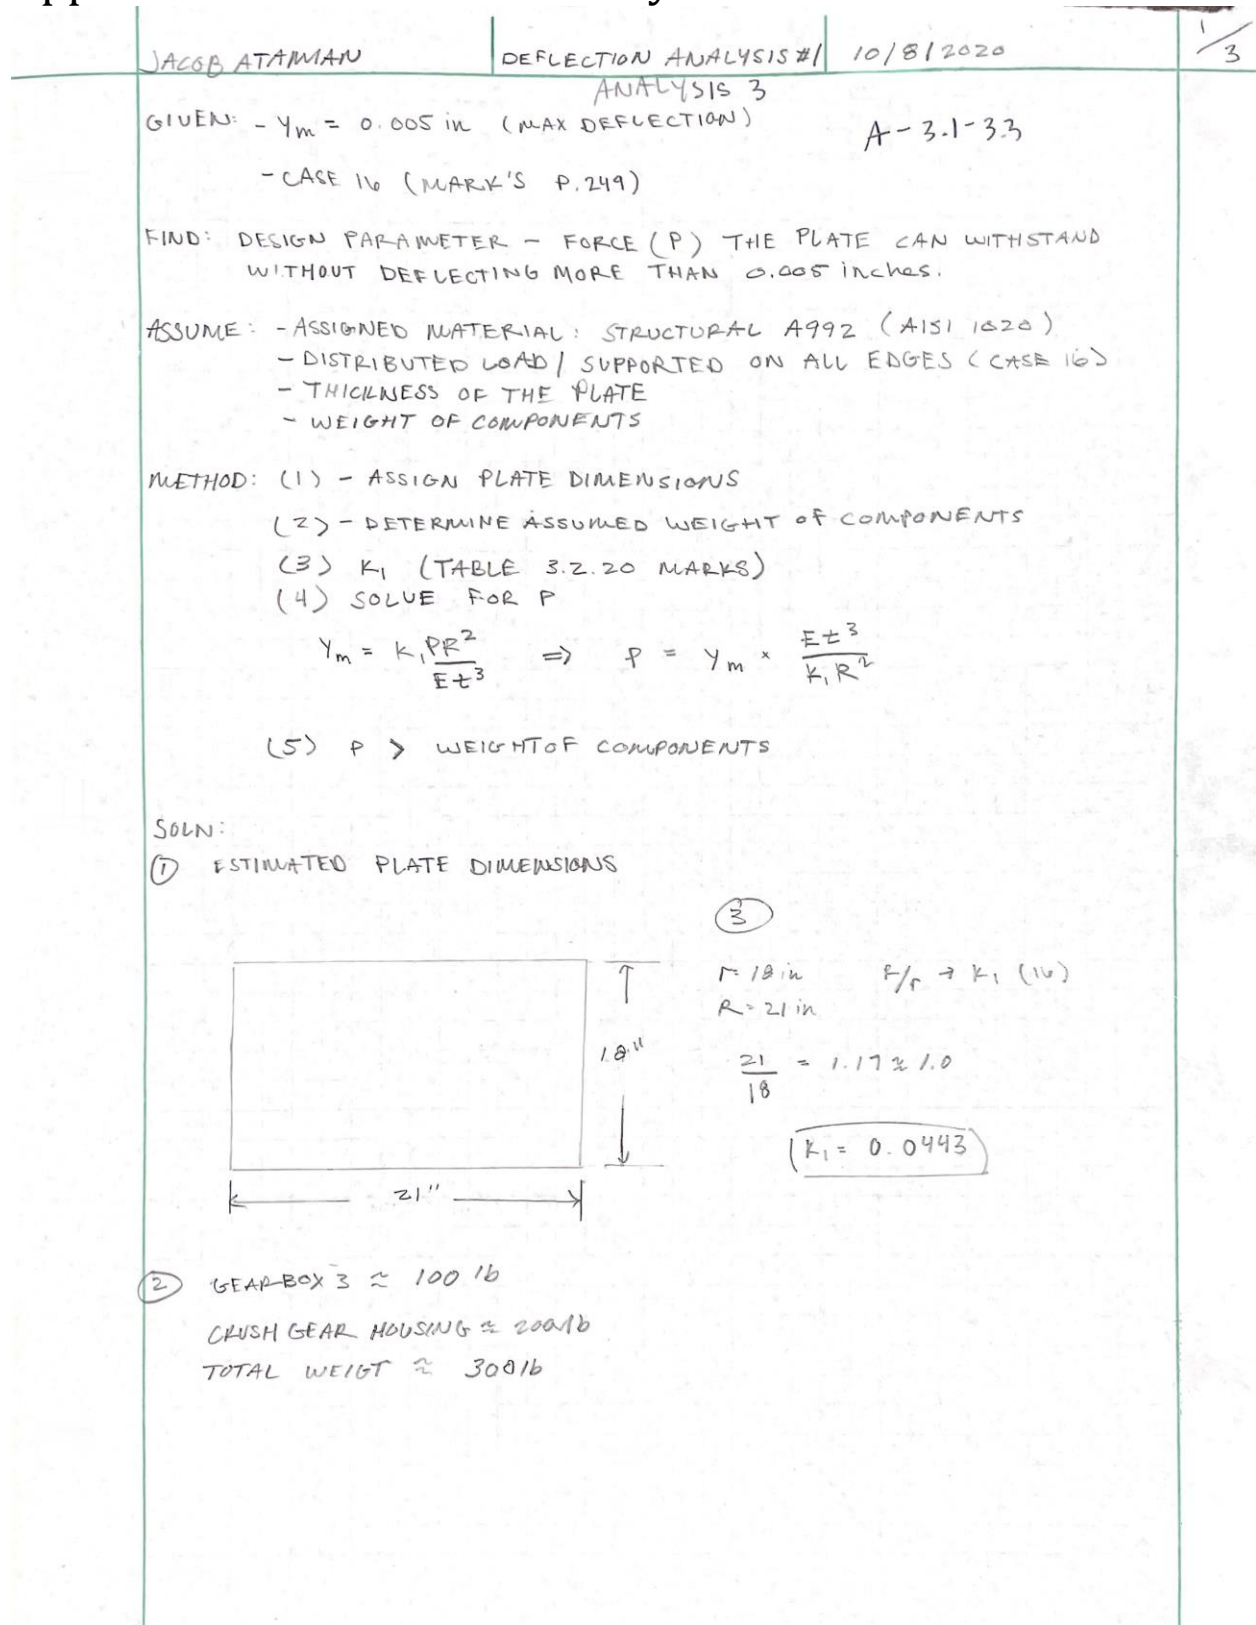 JACOB ATAMIAN DEFLECTION ANALYSIS #1 10/8/2020 1/3
ANALYSIS 3
GIVEN: - Ym = 0.005 in (MAX DEFLECTION) A-3.1-3.3
- CASE 16 (MARK'S P.249)
FIND: DESIGN PARAMETER - FORCE (P) THE PLATE CAN WITHSTAND
WITHOUT DEFLECTING MORE THAN 0.005 inches.
ASSUME: - ASSIGNED MATERIAL: STRUCTURAL A992 (AISI 1020)
- DISTRIBUTED LOAD/ SUPPORTED ON ALL EDGES (CASE 16)
- THICKNESS OF THE PLATE
- WEIGHT OF COMPONENTS
METHOD: (1) - ASSIGN PLATE DIMENSIONS
(2) - DETERMINE ASSUMED WEIGHT OF COMPONENTS
(3) K1 (TABLE 3.2.20 MARKS)
(4) SOLVE FOR P
Ym = K1 PR²/Et³ => P = Ym × Et³/K1R²
(5) P > WEIGHT OF COMPONENTS
SOLN:
① ESTIMATED PLATE DIMENSIONS
③
r= 18 in R/r → K1 (16)
R= 21 in
18"
21/18 = 1.17 ≈ 1.0
K1 = 0.0443
21"
② GEARBOX 3 ≈ 100 lb
CRUSH GEAR HOUSING ≈ 200 lb
TOTAL WEIGT ≈ 300 lb